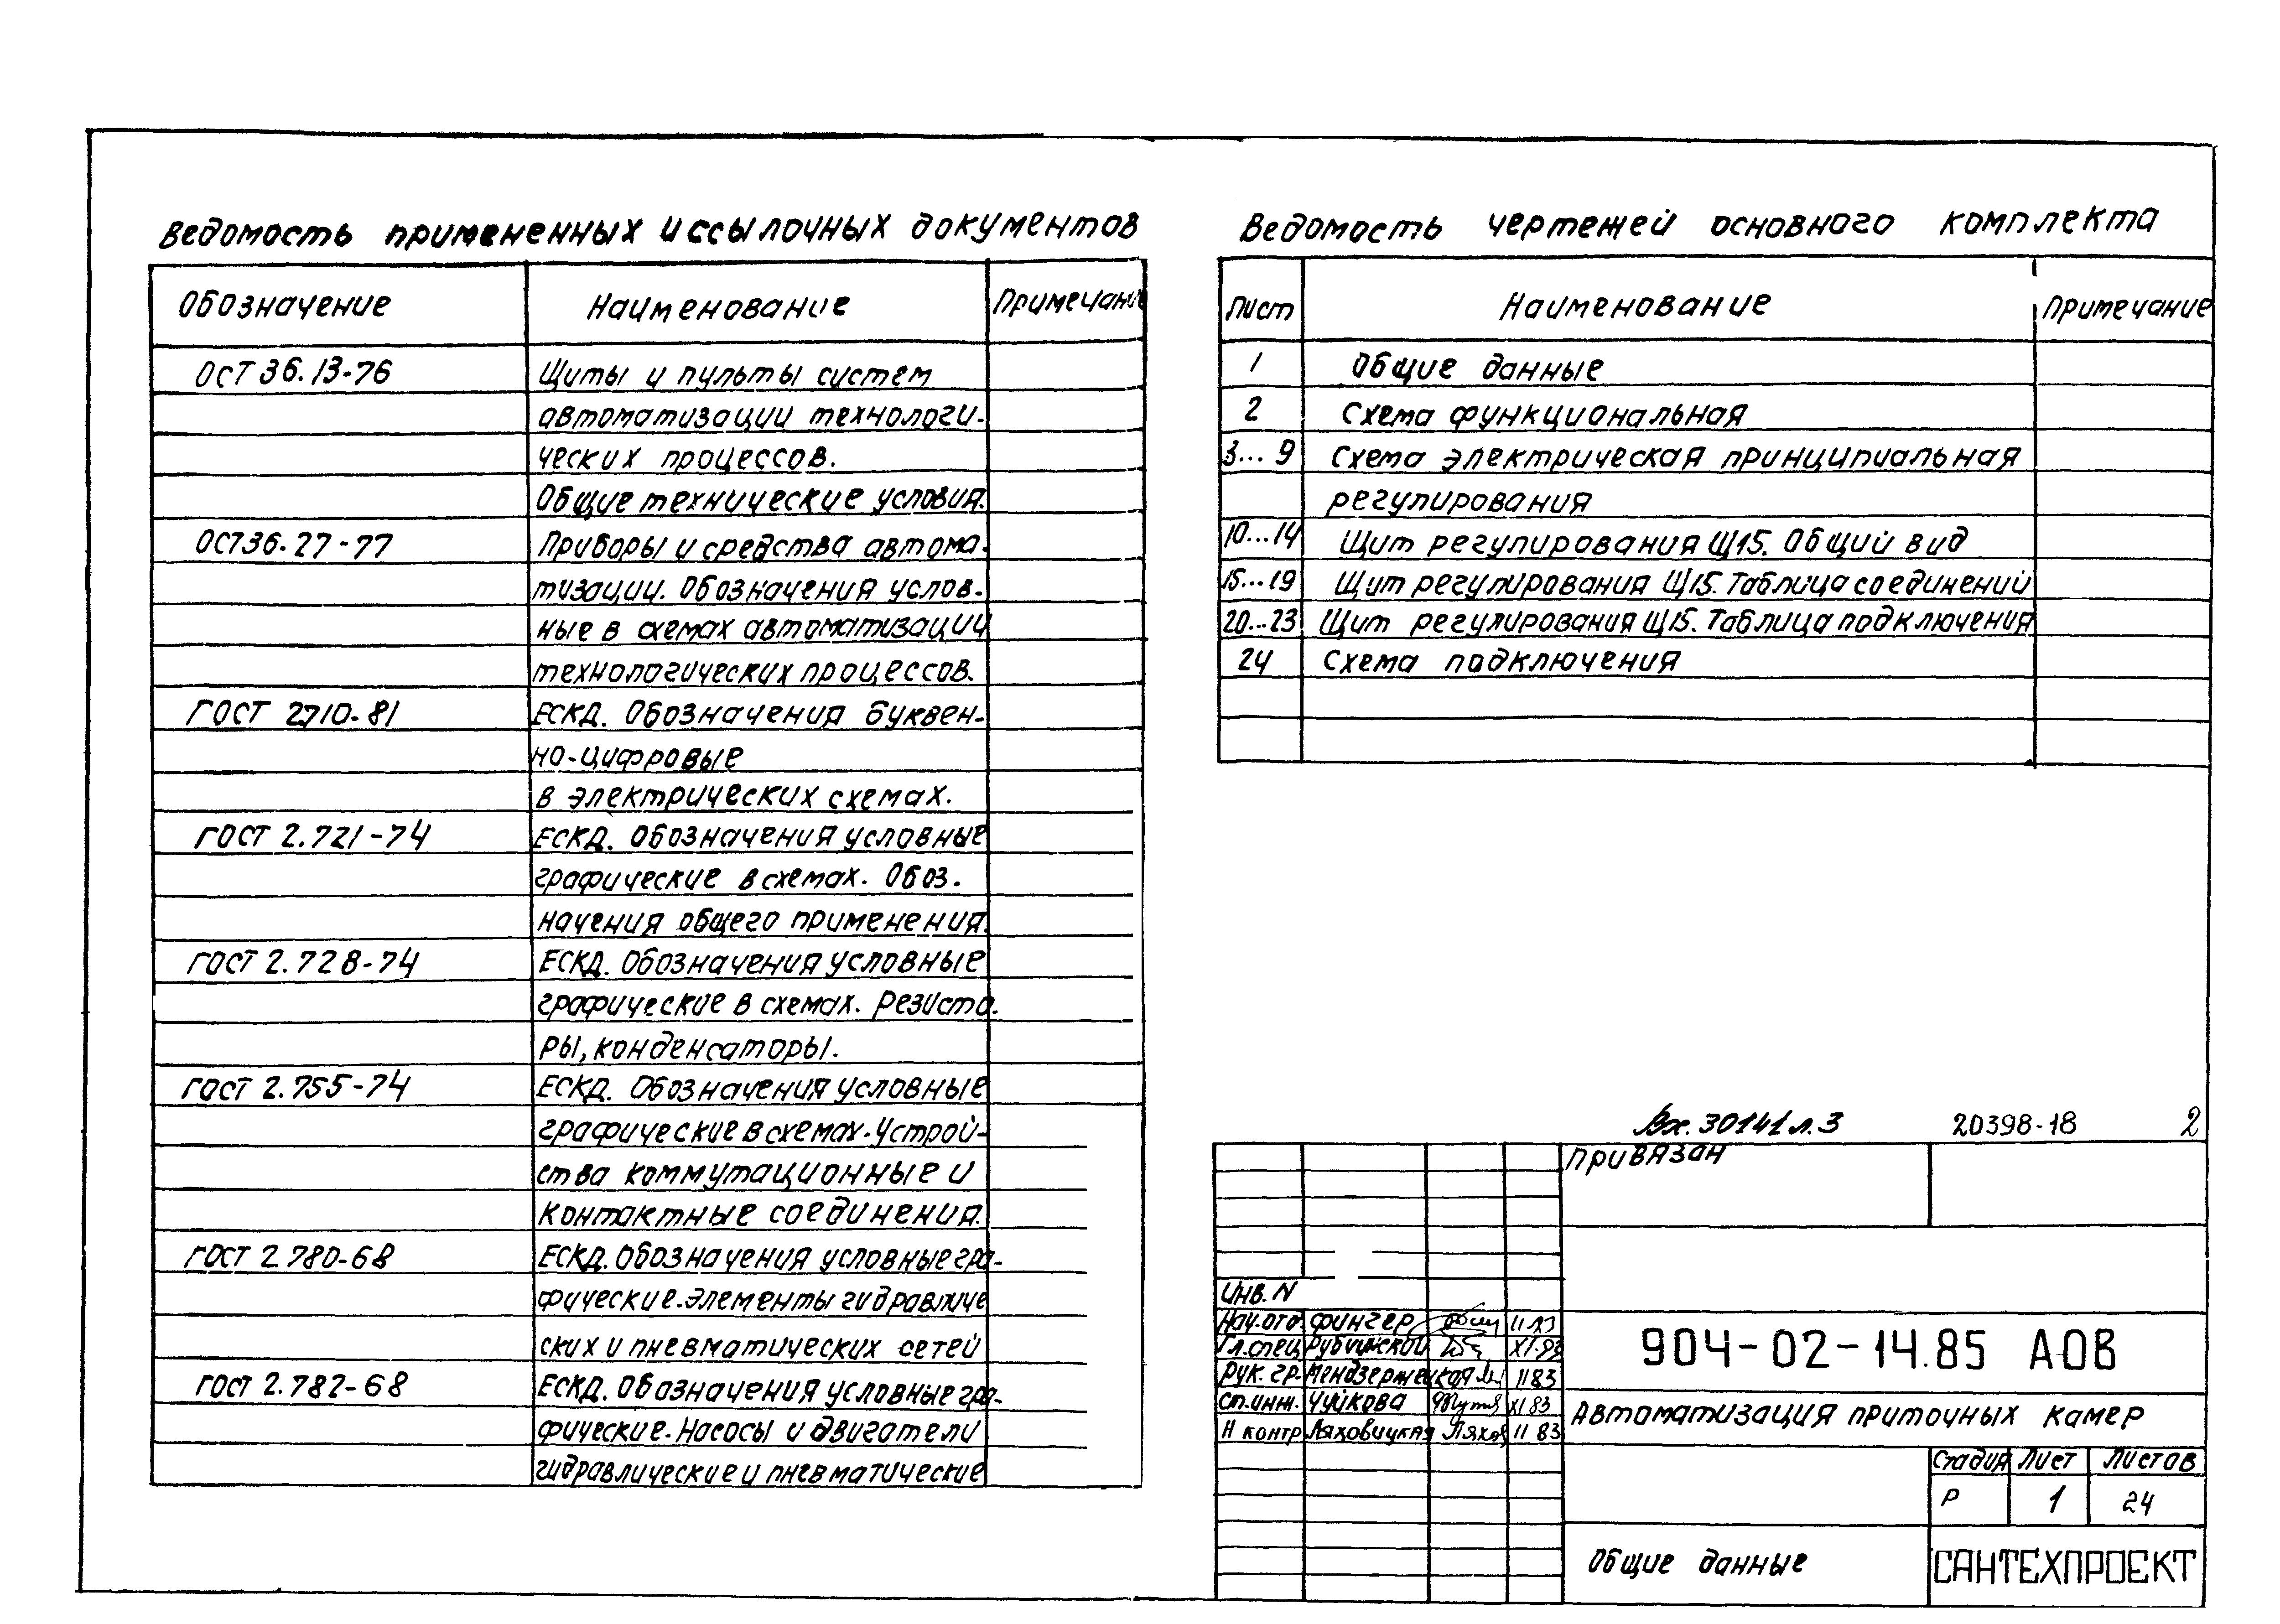 Ведомость примененных и ссылочных документов
Обозначение Наименование Примечание
ОСТ 36.13-76 Щиты и пульты систем
автоматизации технологи-
ческих процессов.
Общие технические условия.
ОСТ 36.27-77 Приборы и средства автома-
тизации. Обозначения услов-
ные в схемах автоматизации
технологических процессов.
ГОСТ 2.710-81 ЕСКД. Обозначения буквен-
но-цифровые
в электрических схемах.
ГОСТ 2.721-74 ЕСКД. Обозначения условные
графические в схемах. Обоз-
начения общего применения.
ГОСТ 2.728-74 ЕСКД. Обозначения условные
графические в схемах. Резисто-
ры, конденсаторы.
ГОСТ 2.755-74 ЕСКД. Обозначения условные
графические в схемах. Устрой-
ства коммутационные и
контактные соединения.
ГОСТ 2.780-68 ЕСКД. Обозначения условные гра-
фические. Элементы гидравличе
ских и пневматических сетей
ГОСТ 2.782-68 ЕСКД. Обозначения условные гра-
фические. Насосы и двигатели
гидравлические и пневматические
Ведомость чертежей основного комплекта
Лист Наименование Примечание
1 Общие данные
2 Схема функциональная
3...9 Схема электрическая принципиальная
регулирования
10...14 Щит регулирования Щ15. Общий вид
15...19 Щит регулирования Щ15. Таблица соединений
20...23 Щит регулирования Щ15. Таблица подключения
24 Схема подключения
Вх. 30141 л.3 20398-18 2
Привязан
Инв. N
Нач. отд. Фингер 11.83
Гл. спец. Рубчинский XI.83
Рук. гр. 11 83
Ст. инж. Чуйкова XI 83
Н контр Ляховицкая 11 83
904-02-14.85 АОВ
Автоматизация приточных камер
Стадия Лист Листов
Р 1 24
Общие данные
САНТЕХПРОЕКТ